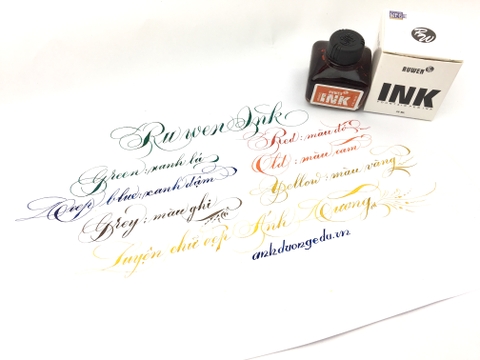 RUWEN
INK
RUWEN
INK
Ruwen Ink
Green: xanh lá
Deep blue: xanh đậm
Grey: màu ghi
Red: màu đỏ
Old: màu cam
Yellow: màu vàng
Luyện chữ đẹp Ánh Dương
anhduongedu.vn